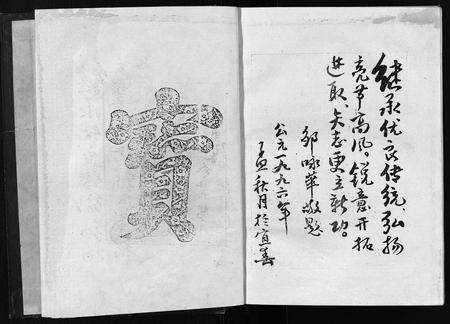 继承优良传统、弘扬
亮节高风。锐意开拓
进取、矢志更立新功。
邹咏华敬题
公元一九九六年
孟秋月于宜春
寶